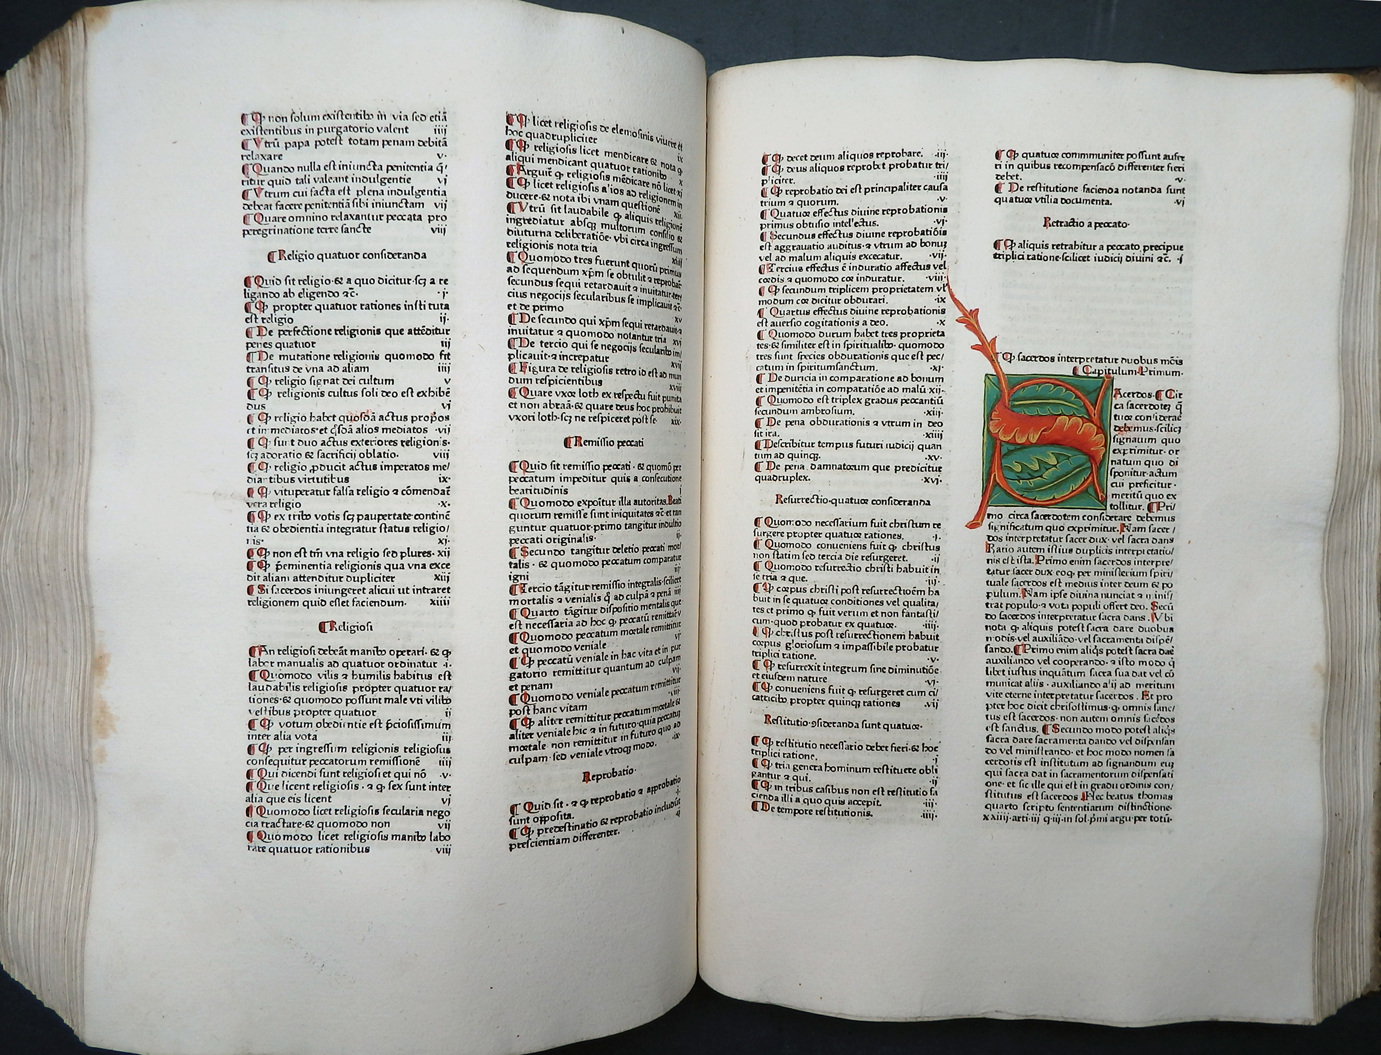 ¶ Qp non solum existentibꝰ in via sed etiã
existentibus in purgatorio valent iiij
¶ Vtrũ papa potest totam penam debitã
relaxare v·
¶ Quando nulla est iniuncta penitentia q̃
ritur quid tali valeant indulgentie vj
¶ Vtrum cui facta est plena indulgentia
debeat facere penitentiã sibi iniunctam vij
¶ Quare omnino relaxantur peccata pro
peregrinatione terre sancte viij
¶ Religio quatuor consideranda
¶ Quid sit religio·⁊ a quo dicitur·scꝫ a re
ligando ab eligendo ⁊c̃· ·j·
¶ Qp propter quatuor rationes insti tuta
est religio ij·
¶ De perfectione religionis que attẽditur
penes quatuor iij
¶ De mutatione religionis quomodo fit
transitus de vna ad aliam iiij
¶ Qp religio signat dei cultum v
¶ Qp religionis cultus soli deo est exhibẽ
dus vi
¶ Qp religio habet quosdã actus proprios
et in mediatos·et q̃sdã alios mediatos ·vij
¶ Qp sunt duo actus exteriores religionis·
scꝫ adoratio ⁊ sacrificij oblatio· viij
¶ Qp religio ꝓducit actus imperatos me/
dia·tibus virtutibus ix·
¶ Qp vituperatur falsa religio ⁊ cõmendat̃
vera religio ·x·
¶ Qp ex tribꝰ votis scꝫ paupertate·continẽ
tia ⁊ obedientia integratur status religio/
nis· xj·
¶ Qp non est tm̃ vna religio sed plures· xij
¶ Qp p̃eminentia religionis qua vna exce
dit aliam attenditur dupliciter xiij
¶ Si sacerdos iniungeret alicui vt intraret
religionem quid esset faciendum· xiiij
¶ Religiosi
¶ An religiosi debeãt manibꝰ operari· ⁊ ꝙ
labor manualis ad quatuor ordinatur ·i·
¶ Quomodo vilis ⁊ humilis habitus est
laudabilis religiosis propter quatuor ra/
tiones·⁊ quomodo possunt male vti vilibꝰ
vestibus propter quatuor ii
¶ Qp votum obedientie est p̃ciosissimum
inter alia vota iij
¶ Qp per ingressum religionis religiosus
consequitur peccatorum remissionẽ iiij
¶ Qui dicendi sunt religiosi et qui nõ ·v·
¶ Que licent religiosis · ⁊ ꝙ sex sunt inter
alia que eis licent vj
¶ Quomodo licet religiosis secularia nego
cia tractare·⁊ quomodo non vij
¶ Quomodo licet religiosis manibꝰ labo
rare quatuor rationibus viij
¶ Qp licet religiosis de elemosinis viuere et
hoc quadrupliciter ix
¶ Qp religiosis licet mendicare ⁊ nota ꝙ
aliqui mendicant quatuor rationibꝰ x
¶ Arguit̃ ꝙ religiosis mẽdicare nõ licet xi
¶ Qp licet religiosis alios ad religionem in
ducere·⁊ nota ibi vnam questionẽ xij·
¶ Vtrũ sit laudabile ꝙ aliquis religionẽ
ingrediatur absqꝫ multorum consilio ⁊
diuturna deliberatiõe· vbi circa ingressum
religionis nota tria xiij
¶ Quomodo tres fuerunt quorũ primus
ad sequendum xp̃m se obtulit ⁊ reprobat̃
secundus sequi retardauit ⁊ inuitatur·ter/
cius negocijs secularibus se implicauit ⁊c̃
et de primo xiiij
¶ De secundo qui xp̃m sequi retardauit·⁊
inuitatur ⁊ quomodo notantur tria xvj
¶ De tercio qui se negocijs secularibꝰ im/
plicauit·⁊ increpatur xvij
¶ Figura de religiosis retro id est ad mun
dum respicientibus xviij
¶ Quare vxor loth ex respectu fuit punita
et non abraã·⁊ quare deus hoc prohibuit
vxori loth·scꝫ ne respiceret post se xix·
¶ Remissio peccati
¶ Quid sit remissio peccati · ⁊ quomõ per
peccatum impeditur quis a consecutione
beatitudinis j
¶ Quomodo exponitur illa autoritas·Beati
quorum remisse sunt iniquitates ⁊c̃·et tan
guntur quatuor·primo tangitur indultio
peccati originalis· ij
¶ Secundo tangitur deletio peccati mor/
talis · ⁊ quomodo peccatum comparatur
igni iij
¶ Tercio tãgitur remissio integralis·scilicet
mortalis ⁊ venialis q̃ ad culpã ⁊ penã iiij
¶ Quarto tãgitur dispositio mentalis que
est necessaria ad hoc ꝙ peccatũ remittat̃ v
¶ Quomodo peccatum mortale remittitur
et quomodo veniale vj
¶ Qp peccatũ veniale in hac vita et in pur
gatorio remittitur quantum ad culpam
et penam vij
¶ Quomodo veniale peccatum remittitur
post hanc vitam ·viij·
¶ Qp aliter remittitur peccatum mortale ⁊
aliter veniale hic ⁊ in futuro·quia peccatũ
mortale non remittitur in futuro quo ad
culpam·sed veniale vtroqꝫ modo. ·ix·
Reprobatio·
¶ Quid sit · ⁊ ꝙ reprobatio ⁊ approbatio
sunt opposita. ·j·
¶ Qp predestinatio ⁊ reprobatio includũt
prescientiam differenter. ij
¶ Qp decet deum aliquos reprobare. ·iij·
¶ Qp deus aliquos reprobet probatur tri/
pliciter. ·iiij
¶ Qp reprobatio dei est principaliter causa
trium ⁊ quorum. ·v·
¶ Quatuor effectus diuine reprobationis
primus obtusio intellectus. ·vj·
¶ Secundus effectus diuine reprobatiõis
est aggrauatio auditus·⁊ vtrum ad bonuꝫ
vel ad malum aliquis excecatur. ·vij·
¶ Tercius effectus ẽ induratio affectus vel
cordis ⁊ quomodo cor induratur. ·viij·
¶ Qp secundum triplicem proprietatem vl̓
modum cor dicitur obdurari. ·ix
¶ Quartus effectus diuine reprobationis
est auersio cogitationis a deo. ·x
¶ Quomodo durum habet tres proprieta
tes·⁊ similiter est in spiritualibꝰ· quomodo
tres sunt species obdurationis que est pec/
catum in spiritumsanctum. ·xj·
¶ De duricia in comparatione ad bonum
et impenitẽtia in comparatiõe ad malũ xij·
¶ Quomodo est triplex gradus peccantiũ
secundum ambrosium. ·xiij·
¶ De pena obdurationis ⁊ vtrum in deo
sit ira. ·xiiij
¶ Describitur tempus futuri iudicij quan
tum ad quinqꝫ. ·xv·
¶ De pena damnatorum que predicitur
quadruplex. ·xvj·
Resurrectio·quatuor consideranda
¶ Quomodo necessarium fuit christum re
surgere propter quatuor rationes. ·j·
¶ Quomodo conueniens fuit ꝙ christus
non statim sed tercia die resurgeret. ·ij·
¶ Quomodo resurrectio christi habuit in
se tria ⁊ que. ·iij·
¶ Qp corpus christi post resurrectionẽm ha
buit in se quatuor conditiones vel qualita/
tes et primo ꝙ fuit verum et non fantasti/
cum·quod probatur ex quatuor. ·iiij·
¶ Qp christus post resurrectionem habuit
corpus gloriosum ⁊ impassibile probatur
triplici ratione. ·v·
¶ Qp resurrexit integrum sine diminutiõe
et eiusdem nature ·vj·
¶ Qp conueniens fuit ꝙ resurgeret cum ci/
catricibꝰ propter quinqꝫ rationes ·vij
Restitutio·ↄsideranda sunt quatuor·
¶ Qp restitutio necessario debet fieri·⁊ hoc
triplici ratione. ·j
¶ Qp tria genera hominum restituere obli
gantur ⁊ qui. ·ij
¶ Qp in tribus casibus non est restitutio fa
cienda illi a quo quis accepit. ·iij·
¶ De tempore restitutionis. ·iiij·
¶ Qp quatuor communiter possunt aufer
ri in quibus recompensacõ differenter fieri
debet. ·v·
¶ De restitutione facienda notanda sunt
quatuor vtilia documenta. ·vj
Retractio a peccato·
¶ Qp aliquis retrahitur a peccato precipue
triplici ratione·scilicet iudicij diuini ⁊c̃· ·j
¶ Qp sacerdos interpretatur duobus modis
¶ Capitulum Primum·
SAcerdos·¶ Cir
ca sacerdoteꝫ q̃
tuor considerare
debemus·scilicꝫ
signatum quo
exprimitur· or
natum quo di
sponitur·actum
cui preficitur·
meritũ quo ex
tollitur. ¶ Pri/
mo circa sacerdotem considerare debemus
significatum quo exprimitur. Nam sacer/
dos interpretatur sacer dux· vel sacra dans
Ratio autem istius duplicis interpretatio/
nis est ista. Primo enim sacerdos interpre/
tatur sacer dux·eoqꝫ per ministerium spiri/
tuale sacerdos est medius inter deum ⁊ po
pulum. Nam ipse diuina nunciat ⁊ minis/
trat populo·⁊ vota populi offert deo. Secũ
do sacerdos interpretatur sacra dans. Vbi
nota ꝙ aliquis potest sacra dare duobus
modis·vel auxiliãdo·vel sacramenta dispẽ/
sando. ¶ Primo enim aliqs potest sacra dare
auxiliando vel cooperando· ⁊ isto modo q̃
libet iustus inquãtum sacra sua dat vel cõ
municat alijs · auxiliando alij ad meritum
vite eterne interpretatur sacerdos . Et pro
pter hoc dicit chrisostimus·ꝙ omnis sanc/
tus est sacerdos·non autem omnis sacerdos
est sanctus. ¶ Secundo modo potest aliqs
sacra dare sacramenta dando vel dispensan
do vel ministrando· et hoc modo nomen sa
cerdotis est institutum ad signandum eum
qui sacra dat in sacramentorum dispensati
one·et sic ille qui est in gradu ordinis con/
stitutus est sacerdos· Hec beatus thomas
quarto scripto sententiarum distinctione·
xxiiij·arti·iij q·iij·in sol·p̃mi argu·per totũ·